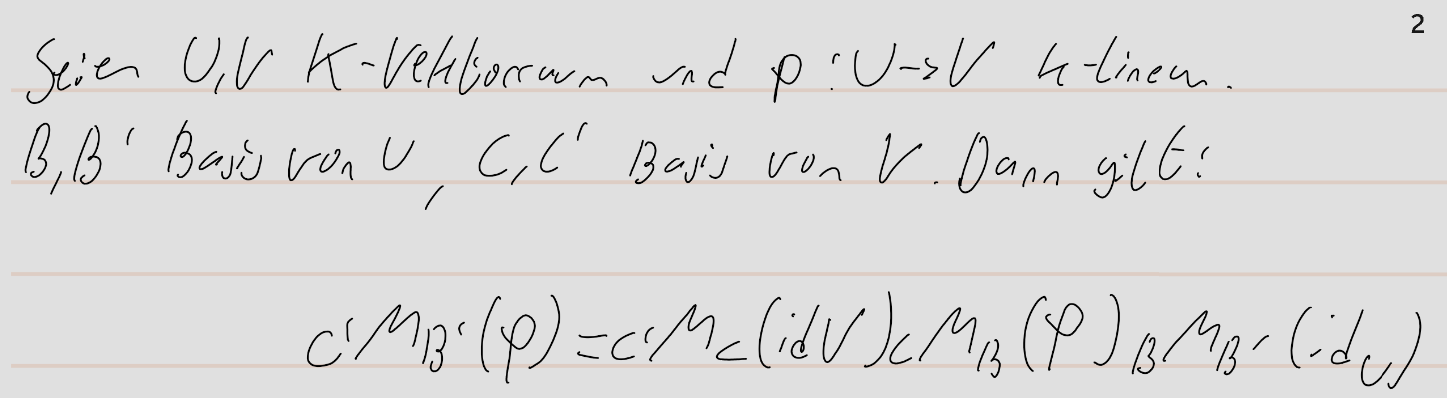 2
Seien U,V K-Vektorraum und φ:U->V k-linear.
B,B' Basis von U, C,C' Basis von V. Dann gilt:
C'MB'(φ)=C'MC(idV)CMB(φ)BMB'(idU)